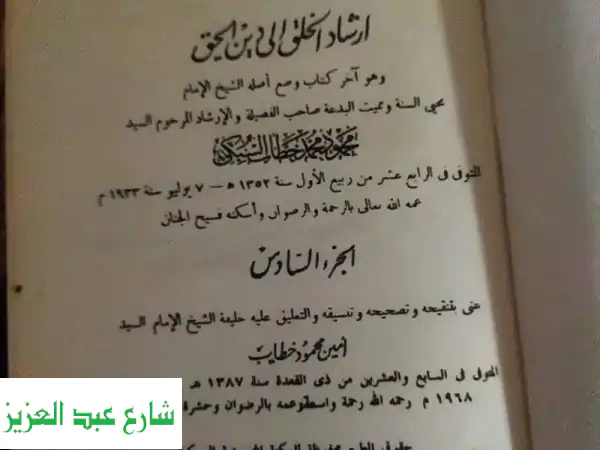 ارشاد الخلق إلى دين الحق
وهو آخر كتاب وضع أصله الشيخ الإمام
محيي السنة ومميت البدعة صاحب الفضيلة والإرشاد المرحوم السيد
محمود محمد خطاب السبكى
المتوفى فى الرابع عشر من ربيع الأول سنة ١٣٥٢ هـ — ٧ يوليو سنة ١٩٣٣ م
عمه الله تعالى بالرحمة والرضوان وأسكنه فسيح الجنان
الجزء السادس
عنى بتنقيحه وتصحيحه وتنسيقه والتعليق عليه خليفة الشيخ الإمام السيد
أمين محمود خطاب
المتوفى فى السابع والعشرين من ذى القعدة سنة ١٣٨٧ هـ
١٩٦٨ م رحمه الله رحمة واسعة وعمه بالرضوان وحشره
شارع عبد العزيز